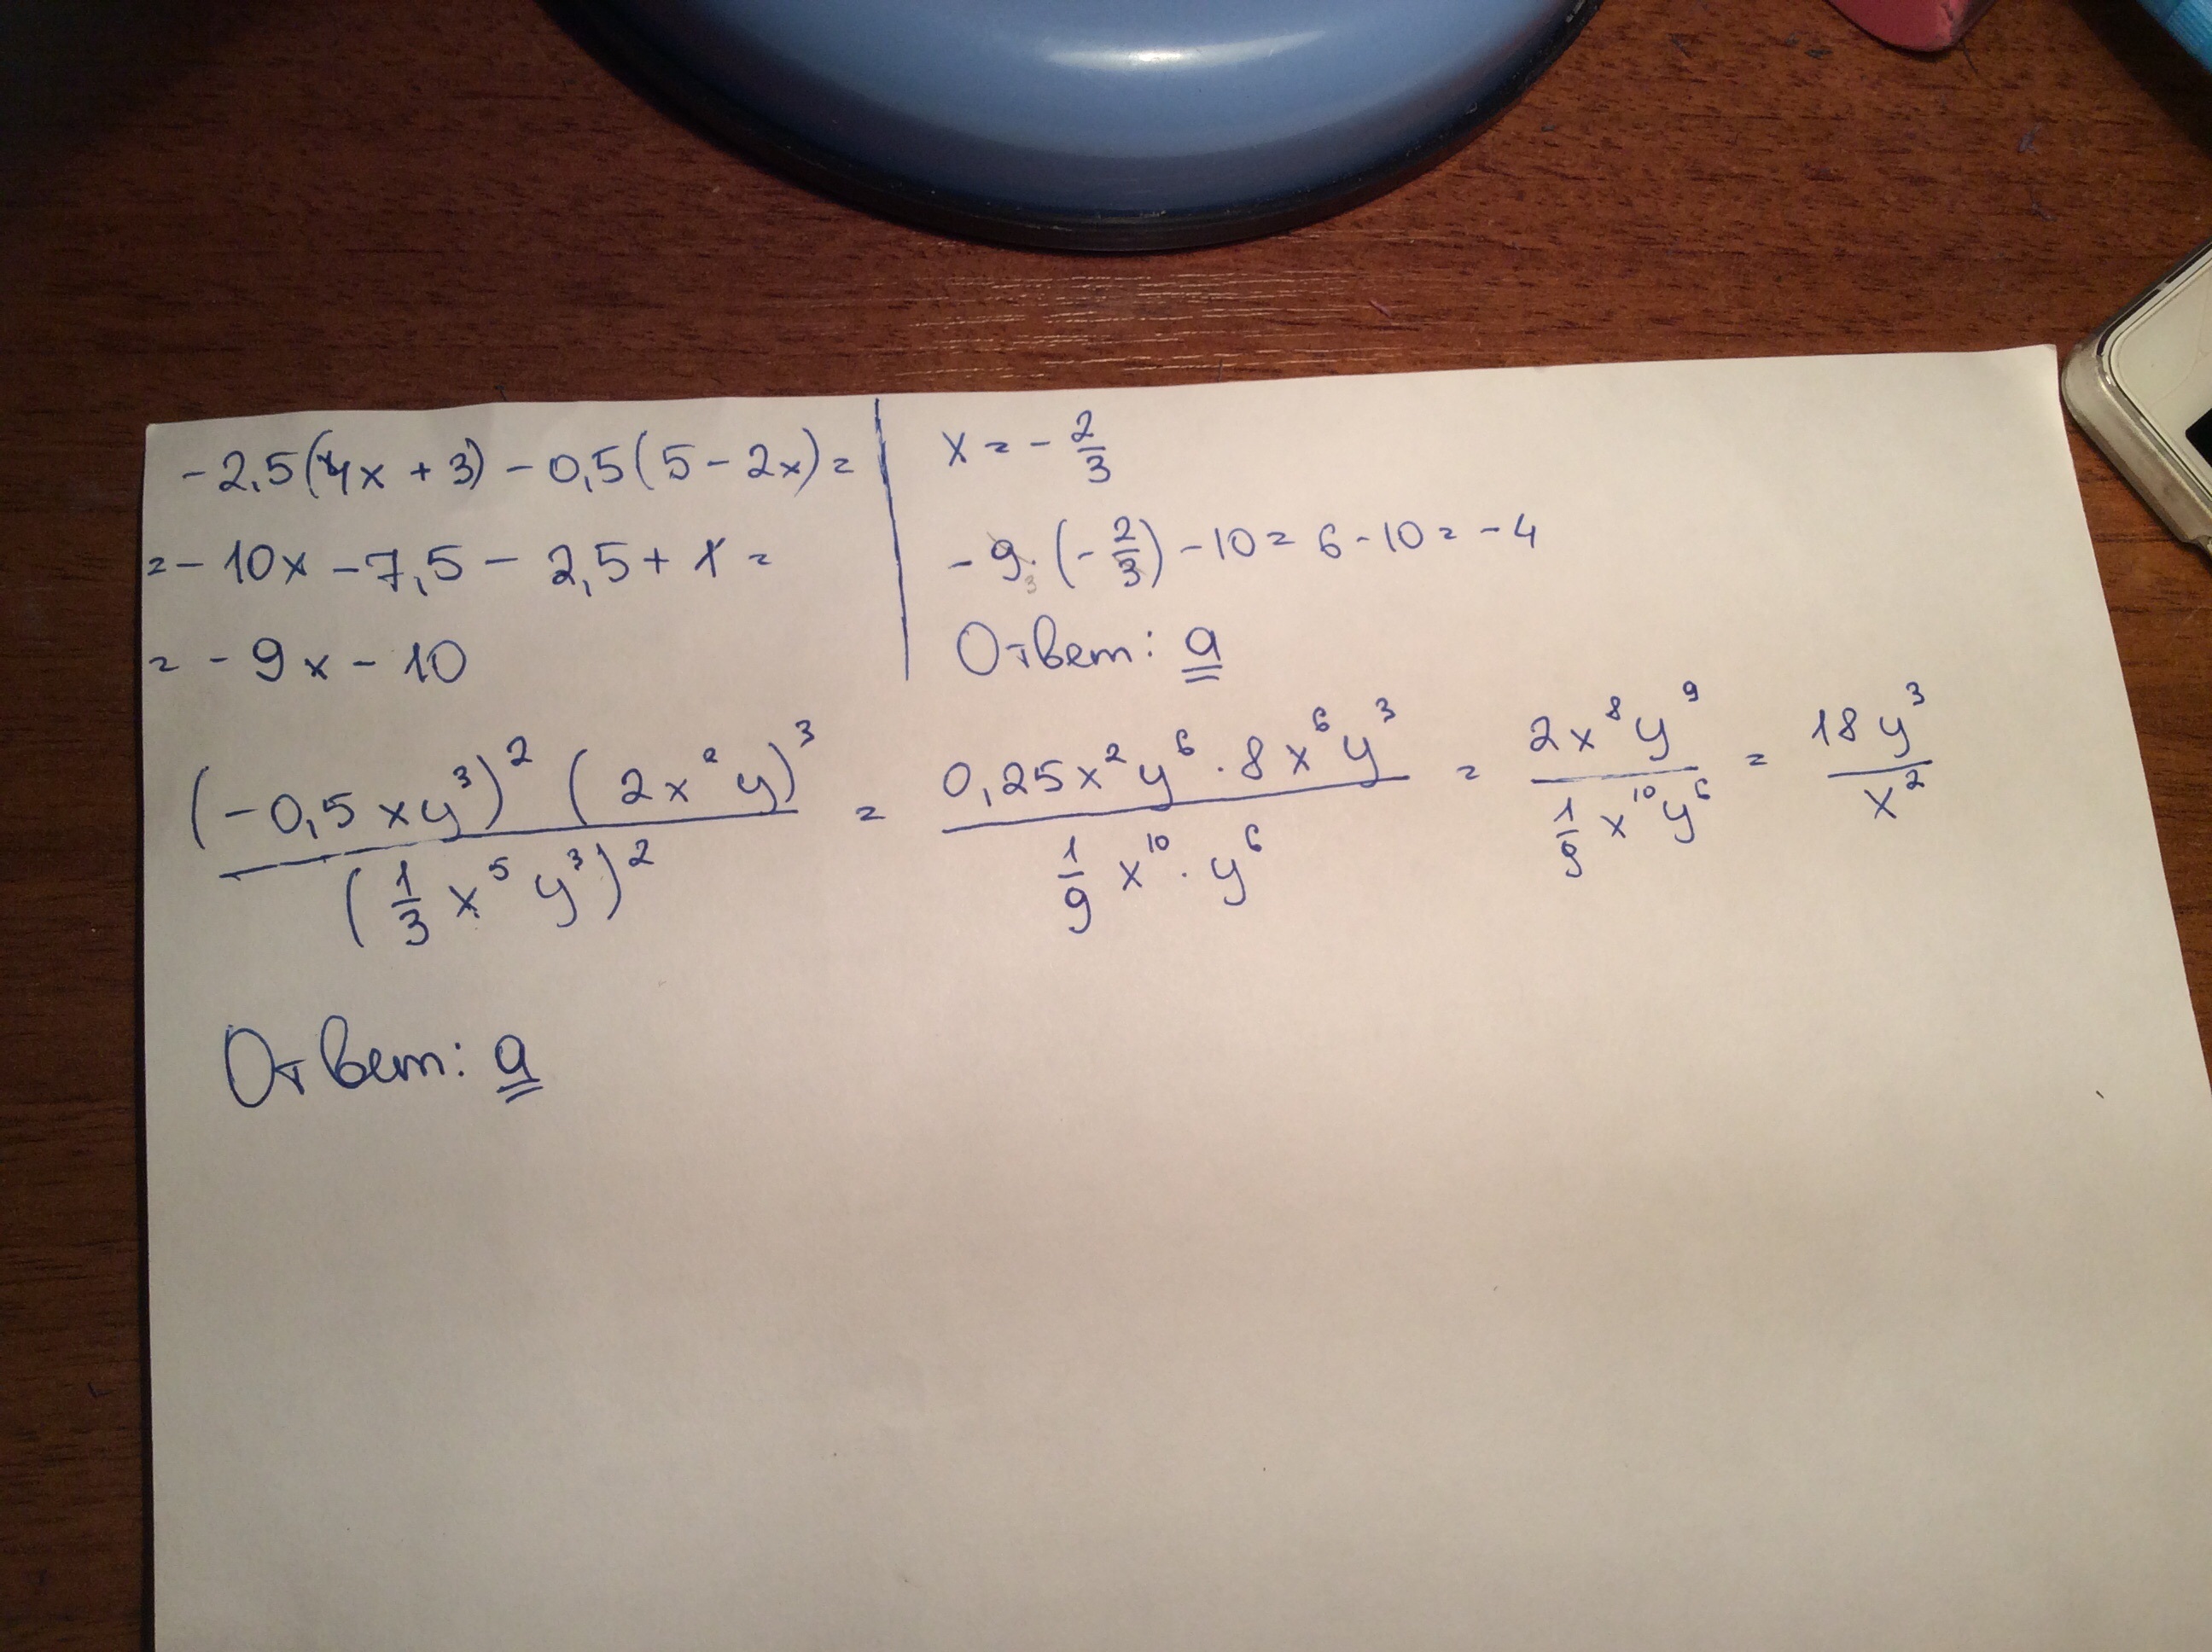 -2,5(4x + 3) - 0,5(5 - 2x) =
= -10x - 7,5 - 2,5 + x =
= -9x - 10
x = -2/3
-9 · (-2/3) - 10 = 6 - 10 = -4
Ответ: а
(-0,5xy³)² (2x²y)³ / (1/3 x⁵y³)² = 0,25x²y⁶ · 8x⁶y³ / 1/9 x¹⁰ · y⁶ = 2x⁸y⁹ / 1/9 x¹⁰y⁶ = 18y³ / x²
Ответ: а